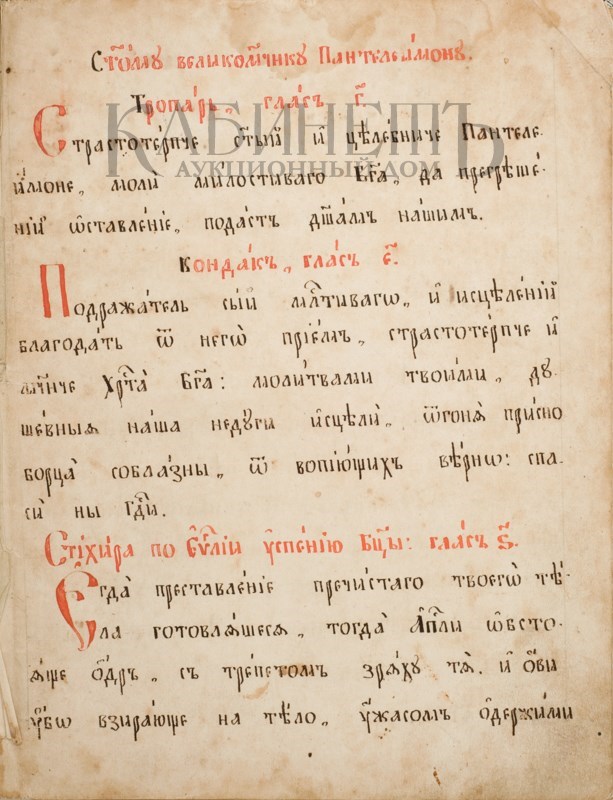 Ст҃о́му великомч҃нику Пантелеи́мону.
Тропа́рь,, гла́съ г҃.
Страстоте́рпче ст҃ы́й и҆ цѣле́бниче Пантеле-
и҆́моне,, молѝ ми́лостиваго бг҃а,, да прегрѣше́-
нїй ѡ҆ставле́нїе,, пода́стъ дш҃а́мъ на́шымъ.
Конда́къ,, гла́съ е҃.
Подража́тель сы́й млⷭ҇тиваго,, и҆ исцѣле́нїй
благода́ть ѿ негѡ̀ прїе́мъ,, страстоте́рпче и҆
мч҃нче хрⷭ҇та̀ бг҃а: моли́твами твои́ми,, ду-
ше́вныя на́ша неду́ги и҆сцѣлѝ,, ѿгоня̀ при́сно
борца̀ собла́зны,, ѿ вопїю́щихъ вѣ́рнѡ: спа-
си́ ны гдⷭ҇и.
Стїхи́ра по є҆ѵⷢ҇лїи ᲂу҆спе́нїю бцⷣы: гла́съ ѕ҃.
Єгда̀ преставле́нїе пречи́стаго твоегѡ̀ тѣ́-
ла готовля́шеся,, тогда̀ а҆пⷭ҇ли ѡ҆бсто-
я́ще ѻ҆́дръ,, съ тре́петомъ зря́ху тя̀. и҆ ѻ҆́ви
ᲂу҆́бѡ взира́юще на тѣ́ло,, ᲂу҆́жасомъ ѻ҆держи́ми
КАБИНЕТЪ
АУКЦИОННЫЙ ДОМ